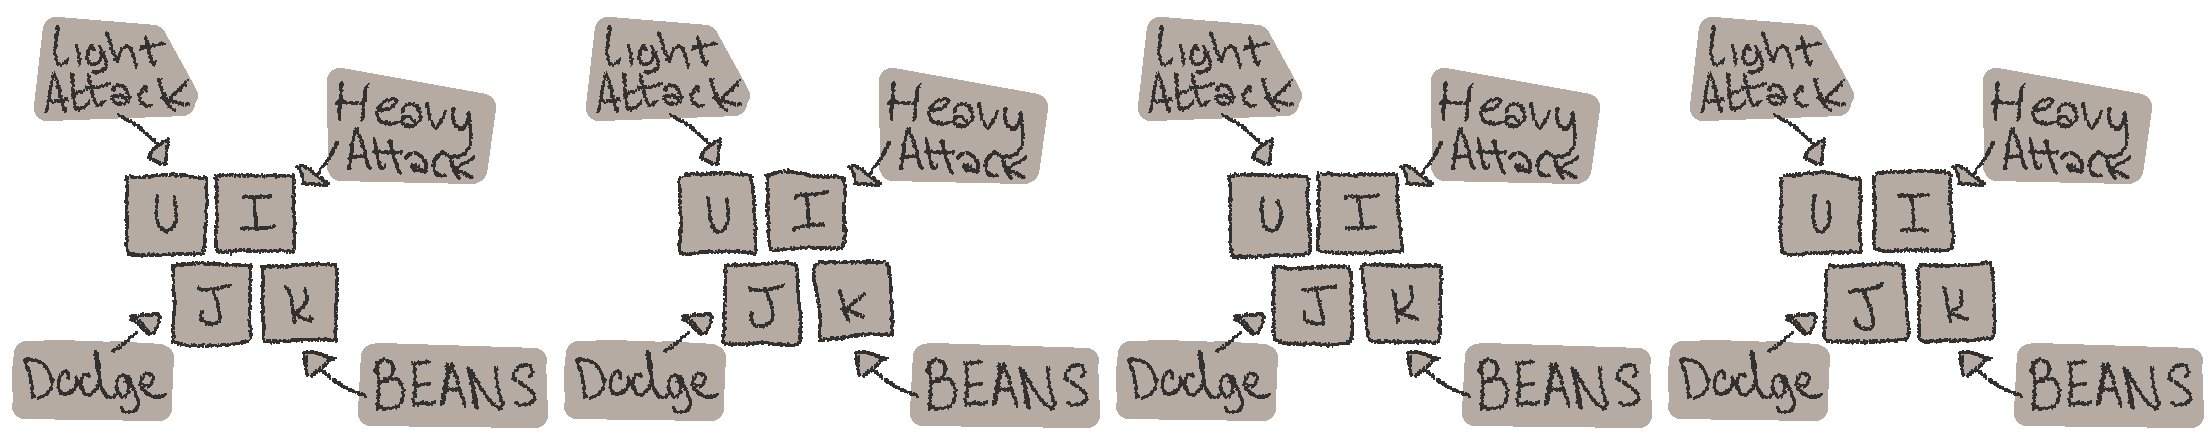 Light
Attack
Heavy
Attack
U I
J K
Dodge
BEANS
Light
Attack
Heavy
Attack
U I
J K
Dodge
BEANS
Light
Attack
Heavy
Attack
U I
J K
Dodge
BEANS
Light
Attack
Heavy
Attack
U I
J K
Dodge
BEANS